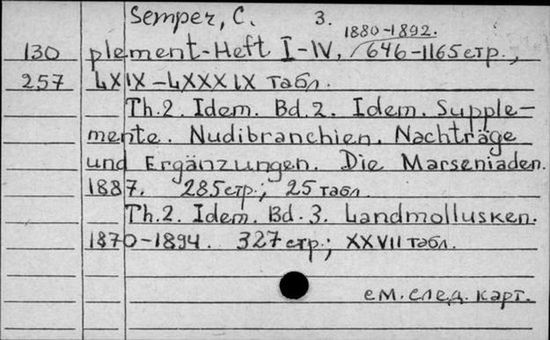 Semper, C. 3.
1880-1892.
130 plement-Heft I-IV, 646-1165стр.,
257 LXIX-LXXXIX табл.
Th.2. Idem. Bd.2. Idem. Supple-
mente. Nudibranchien. Nachträge
und Ergänzungen. Die Marseniaden.
1887. 285стр.; 25 табл.
Th.2. Idem. Bd.3. Landmollusken.
1870-1894. 327стр.; XXVII табл.
см. след. карт.